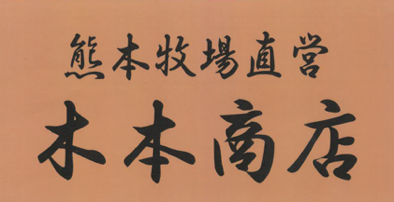 熊本牧場直営
木本商店